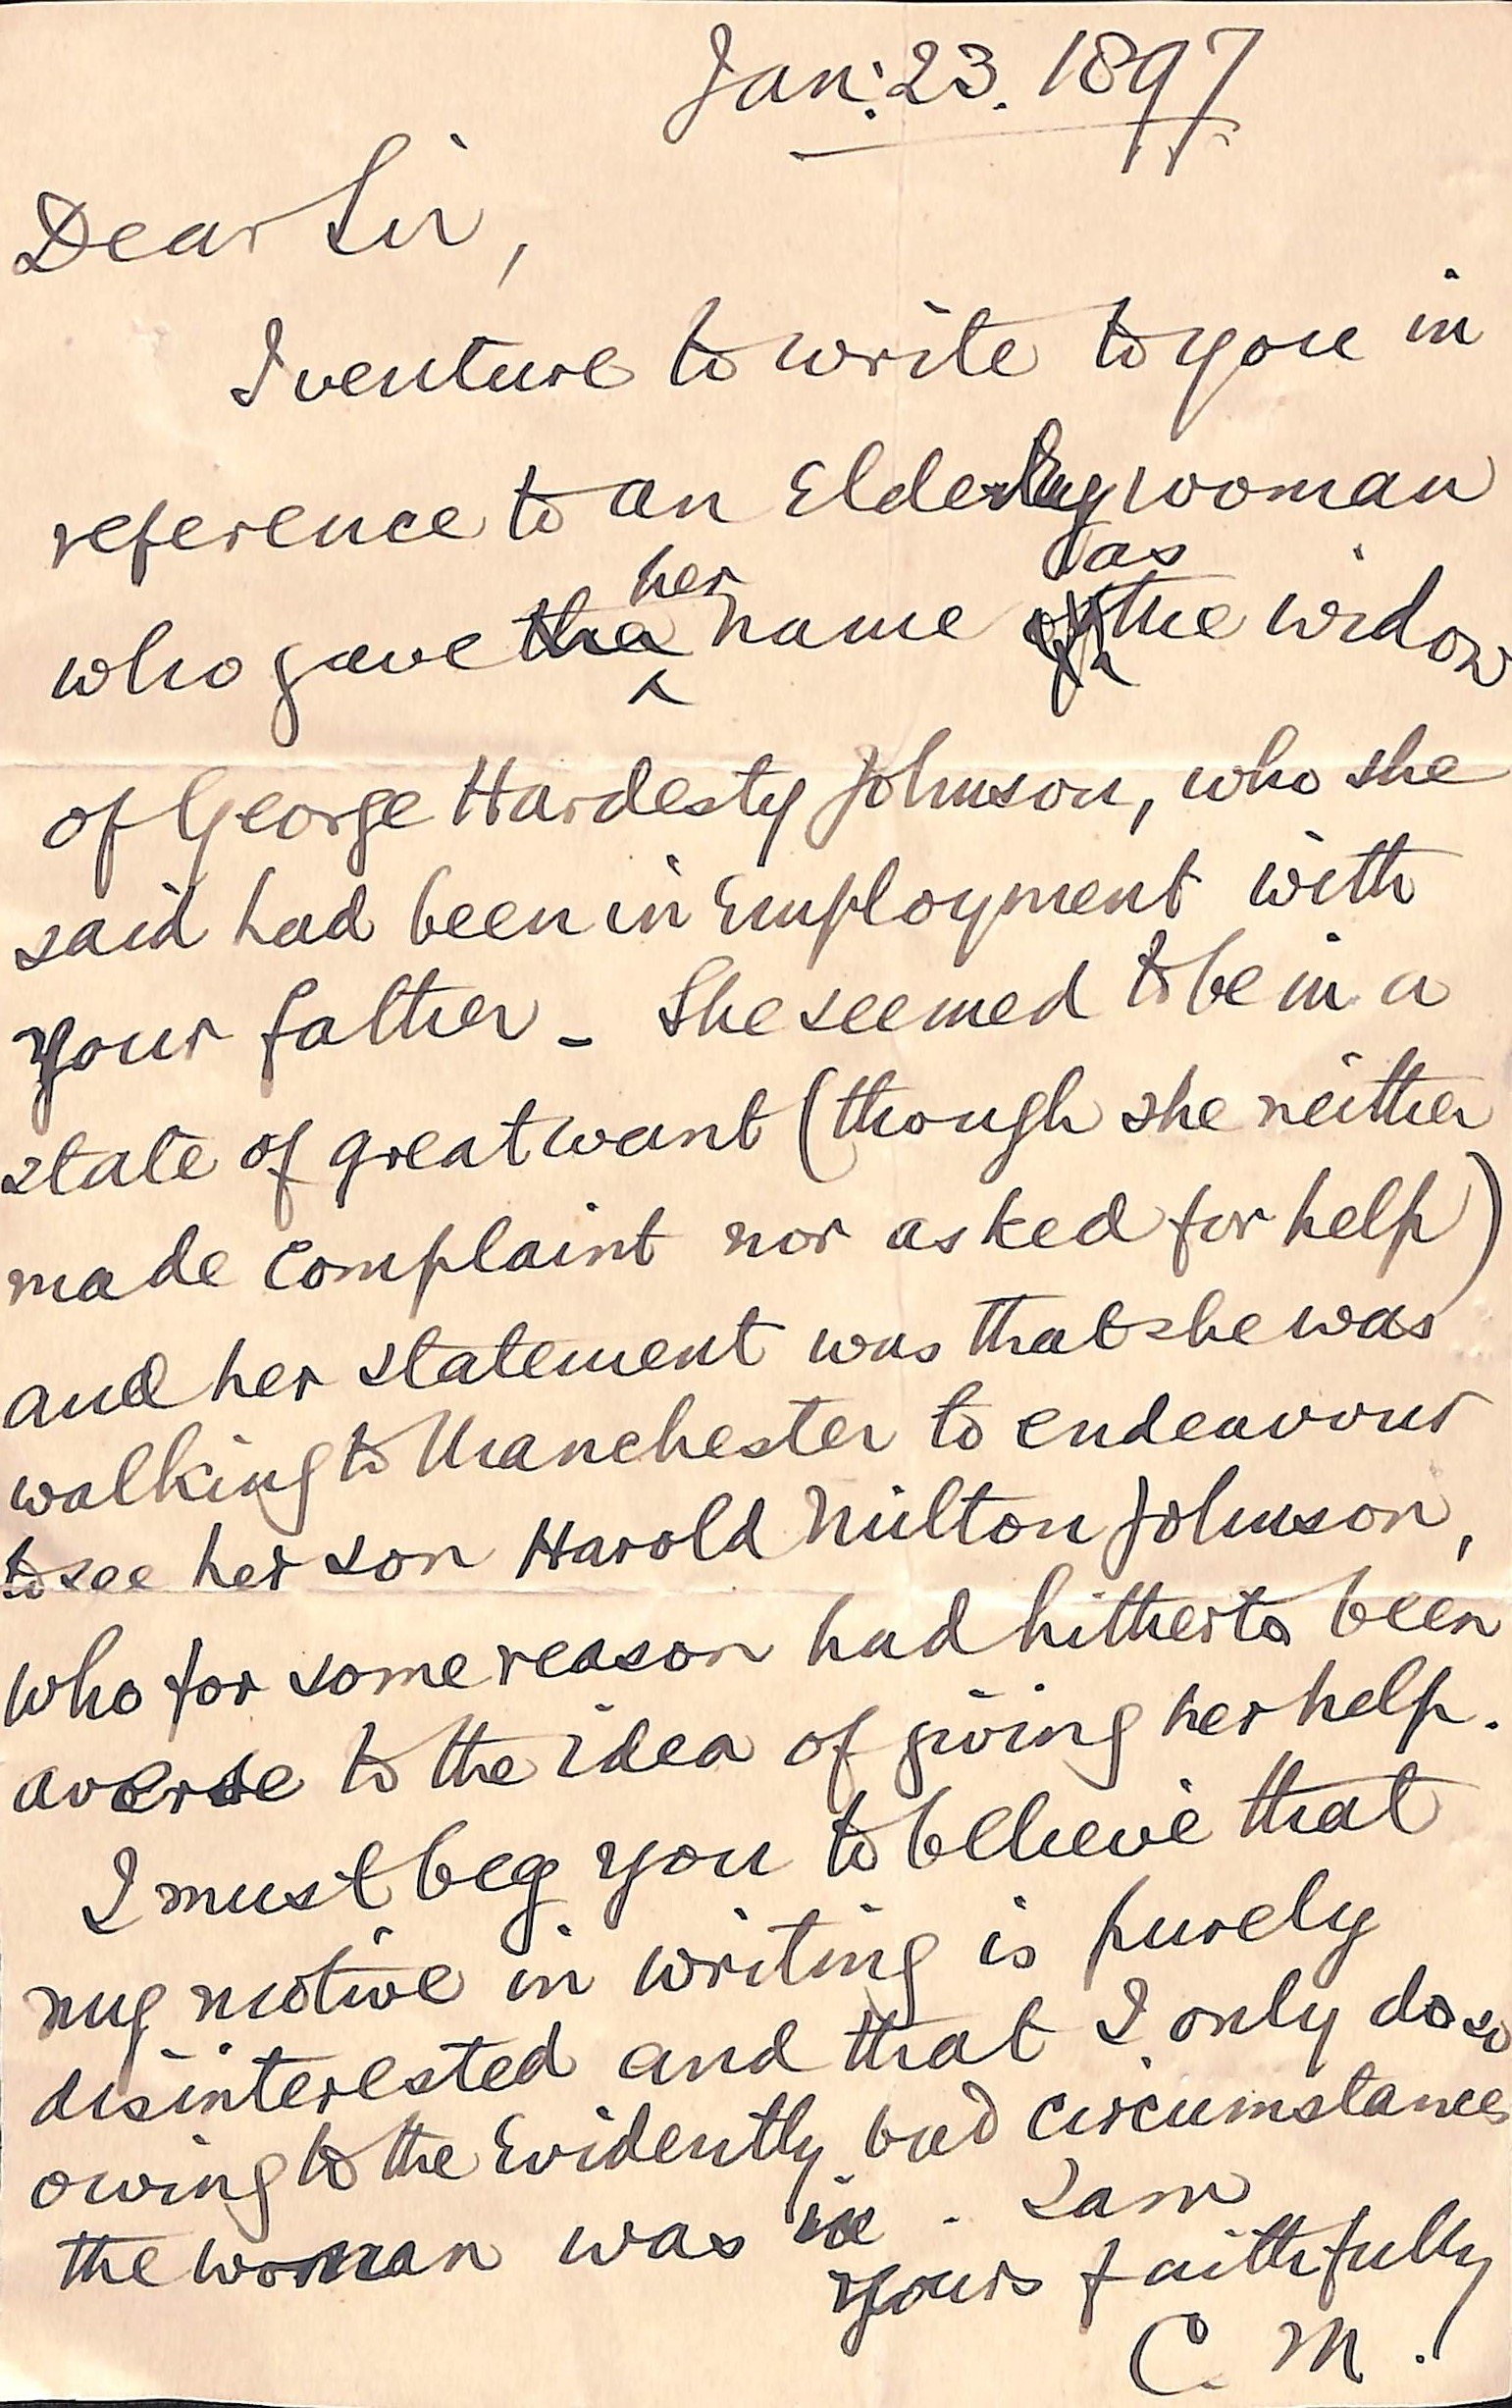 Jan: 23. 1897
Dear Sir,
I venture to write to you in
reference to an Elderly woman
who gave the her name as the widow
of George Hardesty Johnson, who she
said had been in Employment with
your father - She seemed to be in a
state of great want (though she neither
made Complaint nor asked for help)
and her statement was that she was
walking to Manchester to endeavour
to see her son Harold Milton Johnson,
who for some reason had hitherto been
averse to the idea of giving her help.
I must beg you to believe that
my motive in writing is purely
disinterested and that I only do so
owing to the Evidently bad circumstances
the woman was in. I am
yours faithfully
C. M.